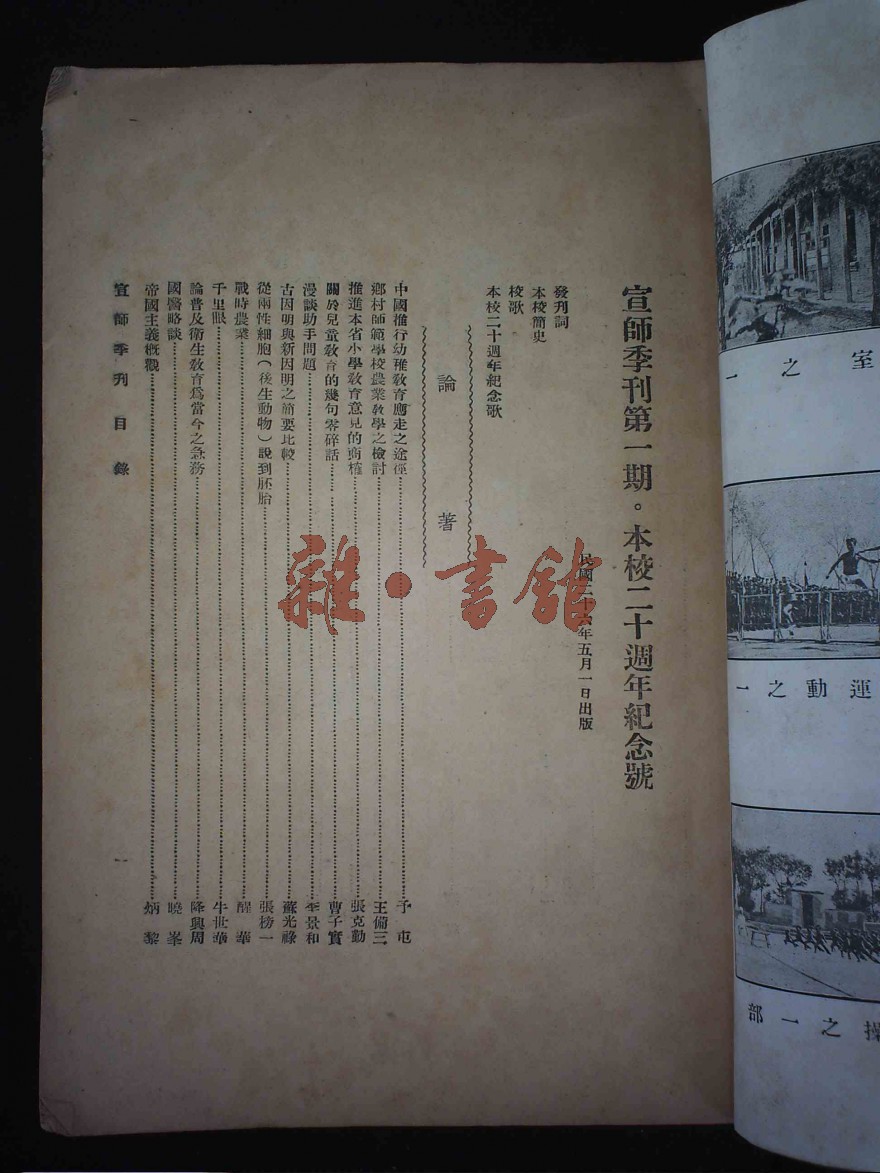 宣師季刊第一期。本校二十週年紀念號
民國二十六年五月一日出版
發刊詞
本校簡史
校歌
本校二十週年紀念歌
論著
中國推行幼稚教育應走之途徑……予屯
鄉村師範學校農業教學之檢討……王備三
推進本省小學教育意見的商榷……張克勤
關於兒童教育的幾句零碎話……曹子實
漫談助手問題……李景和
古因明與新因明之簡要比較……蘇光祿
從兩性細胞(後生動物)說到胚胎……張榜一
戰時農業……醒華
千里眼……牛世華
論普及衛生教育為當今之急務……隆興周
國醫略談……曉峯
帝國主義概觀……炳黎
宣師季刊 目錄
一
雜·書館
室之一
運動之一
操之一部